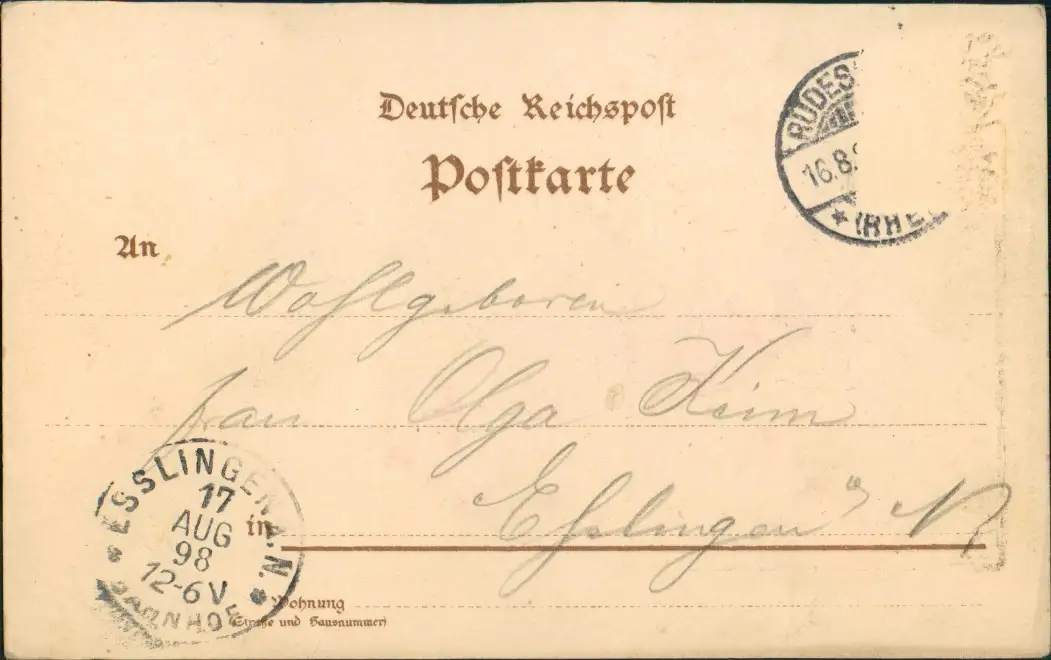 Deutsche Reichspost
Postkarte
RÜDES
16.8.9
* (RHE
An
Wohlgeboren
frau Olga Keim
Esslingen a/ N
in
ESSLINGEN A.N.
17
AUG
98
12-6V
* BAHNHOF *
Wohnung
(Straße und Hausnummer)